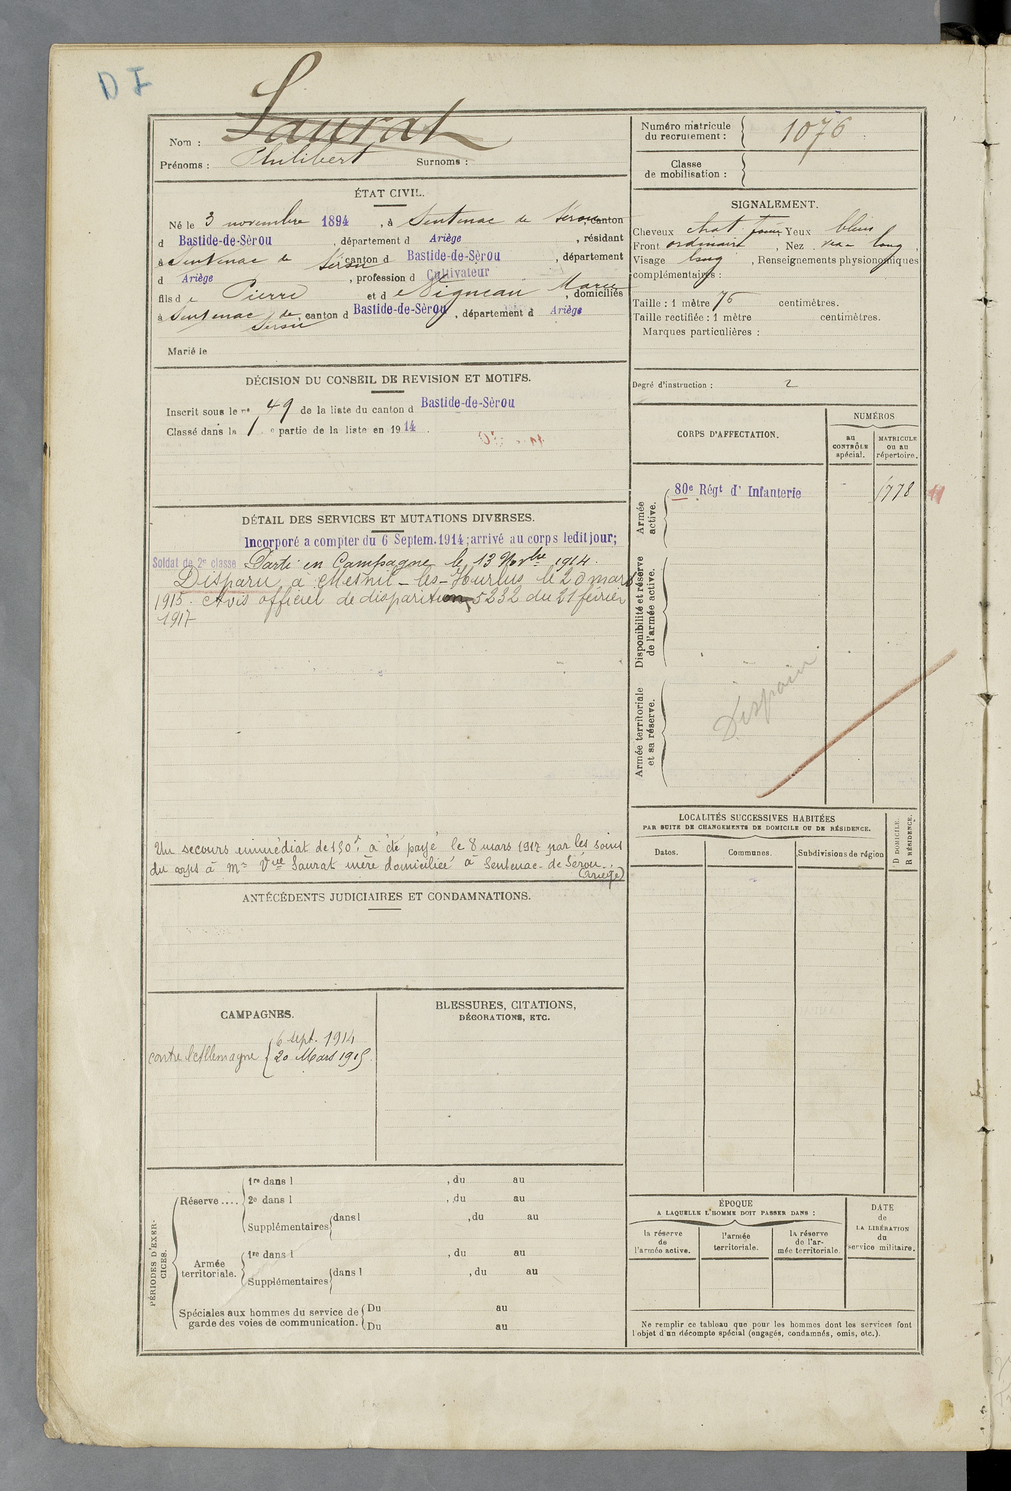 D I
Nom : Saurat
Prénoms : Philibert Surnoms :
Numéro matricule
du recrutement : 1076
Classe
de mobilisation :
ÉTAT CIVIL.
Né le 3 novembre 1894, à Sentenac de Sérou, canton
d Bastide-de-Sèrou, département d Ariège, résidant
à Sentenac de Sérou canton d Bastide-de-Sèrou, département
d Ariège, profession d Cultivateur
fils de Pierre et de Vigneau Marie, domiciliés
à Sentenac de Sérou, canton d Bastide-de-Sèrou, département d Ariège
Marié le
SIGNALEMENT.
Cheveux chat Yeux bleus
Front ordinaire, Nez long,
Visage long, Renseignements physionomiques
complémentaires :
Taille : 1 mètre 76 centimètres.
Taille rectifiée : 1 mètre centimètres.
Marques particulières :
Degré d'instruction : 2
DÉCISION DU CONSEIL DE REVISION ET MOTIFS.
Inscrit sous le no 49 de la liste du canton d Bastide-de-Sèrou
Classé dans la 1 e partie de la liste en 1914.
CORPS D'AFFECTATION.
NUMÉROS
au
CONTRÔLE
spécial.
MATRICULE
ou au
répertoire.
Armée
active.
80e Régt d' Infanterie 1778
Disponibilité et réserve
de l'armée active.
Armée territoriale
et sa réserve.
Disparu
DÉTAIL DES SERVICES ET MUTATIONS DIVERSES.
Incorporé a compter du 6 Septem. 1914; arrivé au corps ledit jour;
Soldat de 2e classe Parti en Campagne le 13 Novbre 1914.
Disparu à Mesnil-les-Hurlus le 20 mars
1915. Avis officiel de disparition 5232 du 21 février
1917
Un secours immédiat de 150f a été payé le 8 mars 1917 par les soins
du corps à Me Vve Saurat mère domiciliée à Sentenac-de-Sérou.
(Ariège)
LOCALITÉS SUCCESSIVES HABITÉES
PAR SUITE DE CHANGEMENTS DE DOMICILE OU DE RÉSIDENCE.
Dates. Communes. Subdivisions de région
D DOMICILE.
R RÉSIDENCE.
ANTÉCÉDENTS JUDICIAIRES ET CONDAMNATIONS.
CAMPAGNES.
contre l'Allemagne
6 sept. 1914
20 Mars 1915
BLESSURES, CITATIONS,
DÉCORATIONS, ETC.
PÉRIODES D'EXER-
CICES.
Réserve ....
1re dans l , du au
2e dans l , du au
Supplémentaires dans l , du au
Armée
territoriale.
1re dans l , du au
Supplémentaires dans l , du au
Spéciales aux hommes du service de
garde des voies de communication.
Du au
Du au
ÉPOQUE
A LAQUELLE L'HOMME DOIT PASSER DANS :
la réserve
de
l'armée active.
l'armée
territoriale.
la réserve
de l'ar-
mée territoriale.
DATE
de
LA LIBÉRATION
du
service militaire.
Ne remplir ce tableau que pour les hommes dont les services font
l'objet d'un décompte spécial (engagés, condamnés, omis, etc.).